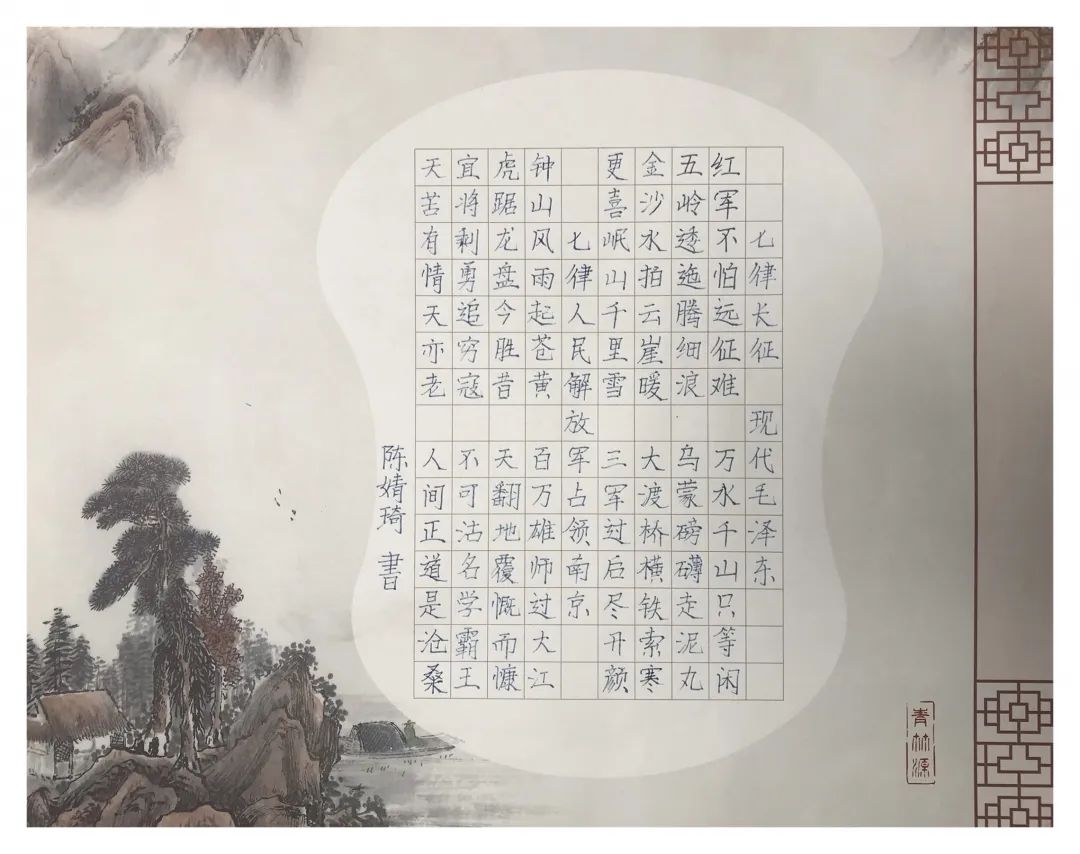 七律长征 现代毛泽东
红军不怕远征难 万水千山只等闲
五岭逶迤腾细浪 乌蒙磅礴走泥丸
金沙水拍云崖暖 大渡桥横铁索寒
更喜岷山千里雪 三军过后尽开颜
七律人民解放军占领南京
钟山风雨起苍黄 百万雄师过大江
虎踞龙盘今胜昔 天翻地覆慨而慷
宜将剩勇追穷寇 不可沽名学霸王
天苦有情天亦老 人间正道是沧桑
陈婧琦 書
青林源